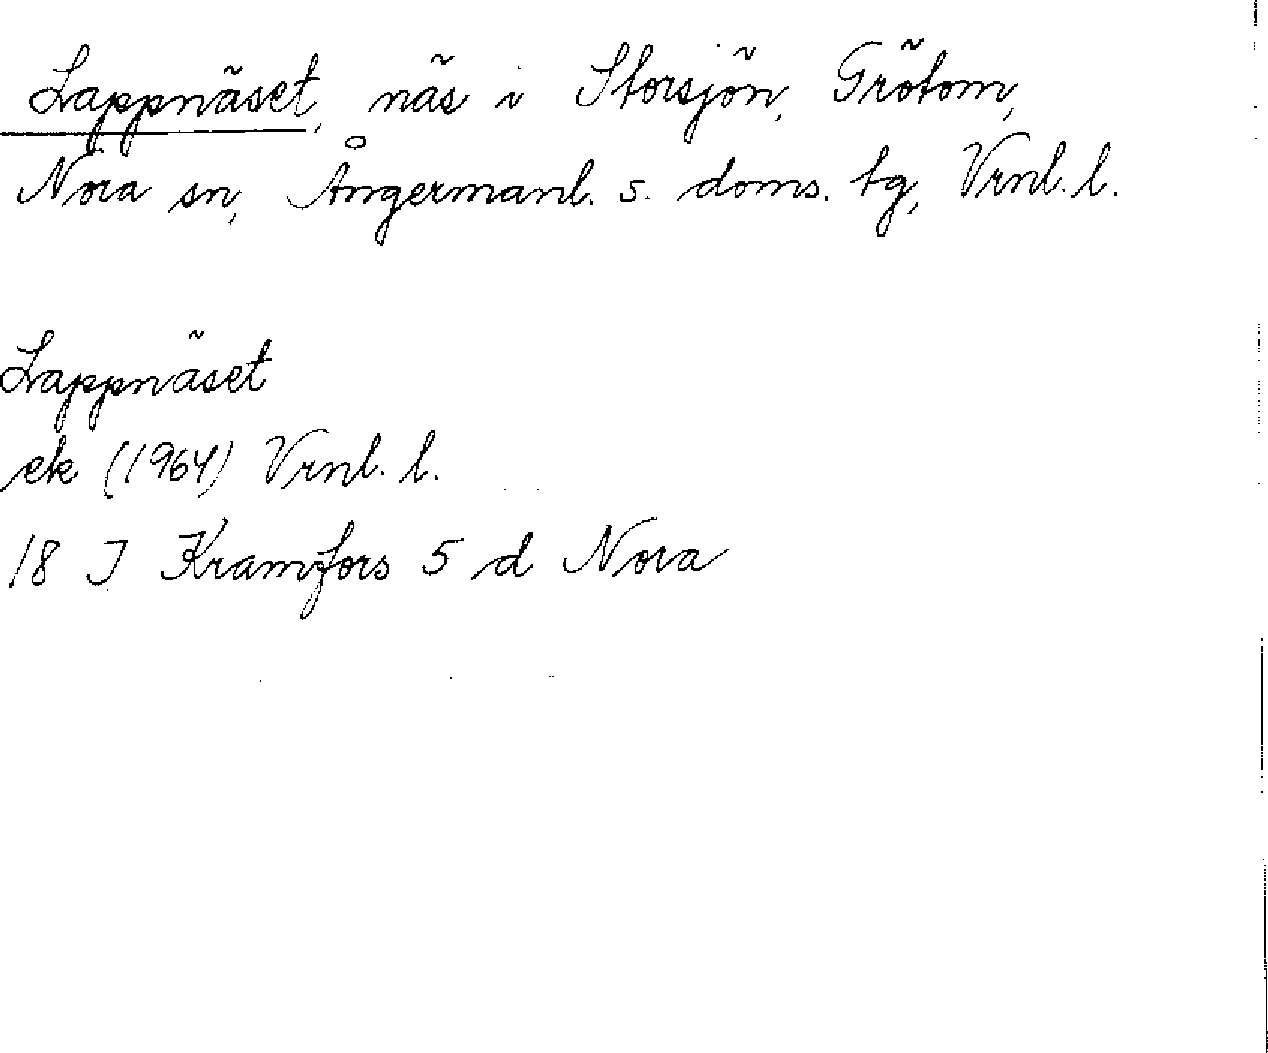 Lappnäset, näs i Storsjön, Grötom,
Nora sn, Ångermanl. s. doms. tg, Vrnl. l.
Lappnäset
ek (1964) Vrnl. l.
18 I Kramfors 5 d Nora